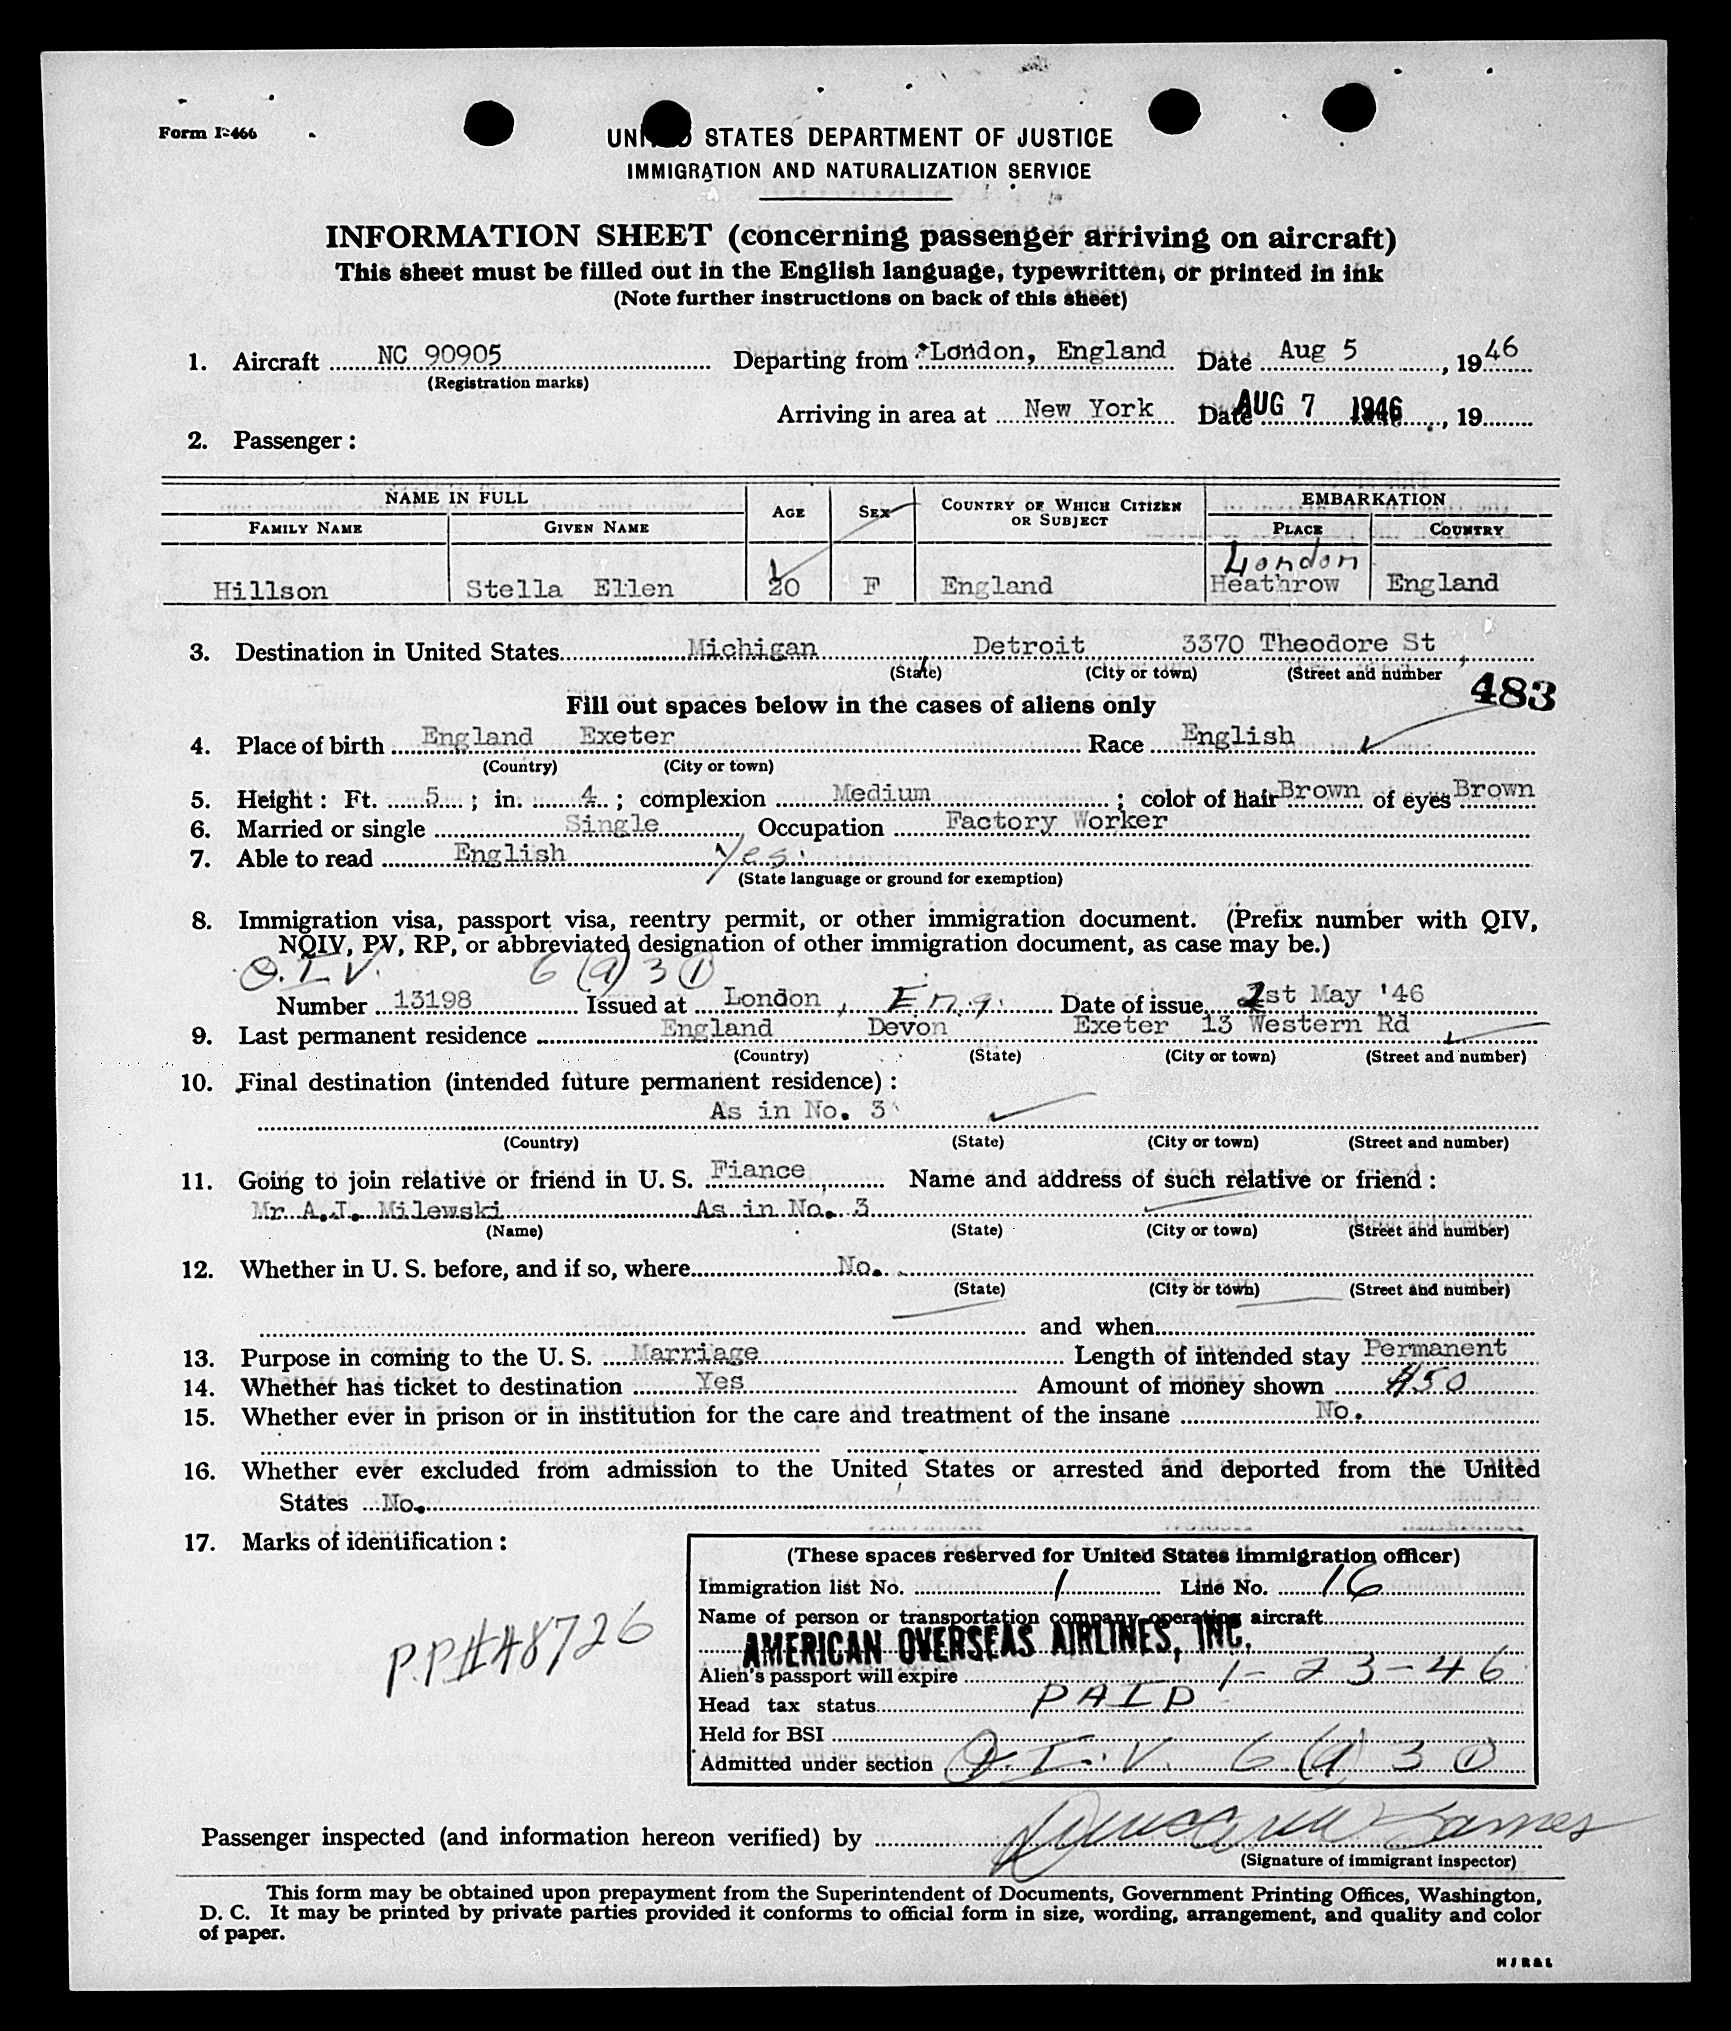 Form I-466
UNITED STATES DEPARTMENT OF JUSTICE
IMMIGRATION AND NATURALIZATION SERVICE
INFORMATION SHEET (concerning passenger arriving on aircraft)
This sheet must be filled out in the English language, typewritten, or printed in ink
(Note further instructions on back of this sheet)
1. Aircraft NC 90905 Departing from London, England Date Aug 5, 1946
(Registration marks)
Arriving in area at New York Date AUG 7 1946, 19
2. Passenger:
NAME IN FULL AGE SEX COUNTRY OF WHICH CITIZEN OR SUBJECT EMBARKATION
FAMILY NAME GIVEN NAME PLACE COUNTRY
London
Hillson Stella Ellen 20 F England Heathrow England
3. Destination in United States Michigan Detroit 3370 Theodore St
(State) (City or town) (Street and number
483
Fill out spaces below in the cases of aliens only
4. Place of birth England Exeter Race English
(Country) (City or town)
5. Height: Ft. 5; in. 4; complexion Medium; color of hair Brown of eyes Brown
6. Married or single Single, Occupation Factory Worker
7. Able to read English Yes.
(State language or ground for exemption)
8. Immigration visa, passport visa, reentry permit, or other immigration document. (Prefix number with QIV,
NQIV, PV, RP, or abbreviated designation of other immigration document, as case may be.)
Q.I.V. 6 (a) 3 (1)
Number 13198 Issued at London, Eng. Date of issue 21st May '46
9. Last permanent residence England Devon Exeter 13 Western Rd
(Country) (State) (City or town) (Street and number)
10. Final destination (intended future permanent residence):
As in No. 3
(Country) (State) (City or town) (Street and number)
11. Going to join relative or friend in U. S. Fiance, Name and address of such relative or friend:
Mr A.J. Milewski As in No. 3
(Name) (State) (City or town) (Street and number)
12. Whether in U. S. before, and if so, where No.
(State) (City or town) (Street and number)
and when
13. Purpose in coming to the U. S. Marriage Length of intended stay Permanent
14. Whether has ticket to destination Yes Amount of money shown $50
15. Whether ever in prison or in institution for the care and treatment of the insane No.
16. Whether ever excluded from admission to the United States or arrested and deported from the United
States No.
17. Marks of identification:
P.P#48726
(These spaces reserved for United States immigration officer)
Immigration list No. 1 Line No. 16
Name of person or transportation company operating aircraft
AMERICAN OVERSEAS AIRLINES, INC.
Alien's passport will expire 1-23-46
Head tax status PAID
Held for BSI
Admitted under section Q.I.V. 6 (a) 3 (1)
Passenger inspected (and information hereon verified) by
(Signature of immigrant inspector)
This form may be obtained upon prepayment from the Superintendent of Documents, Government Printing Offices, Washington,
D. C. It may be printed by private parties provided it conforms to official form in size, wording, arrangement, and quality and color
of paper.